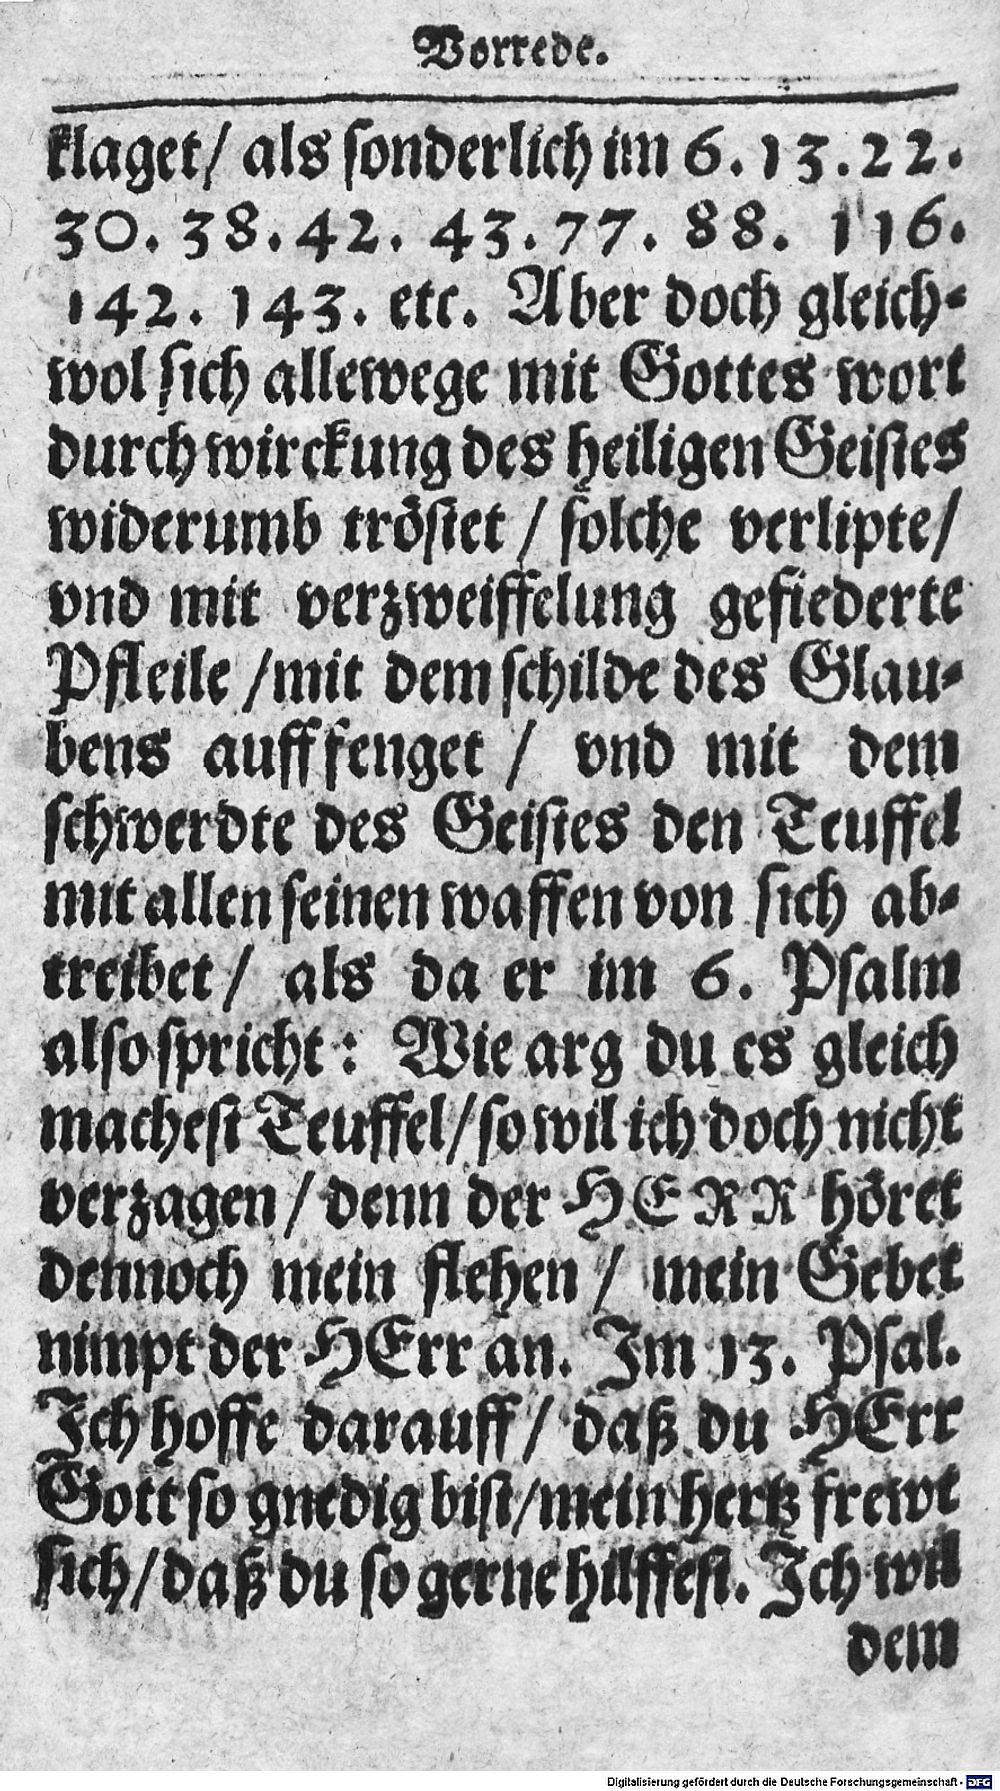 Vorrede.
klaget/ als ſonderlich im 6. 13. 22.
30. 38. 42. 43. 77. 88. 116.
142. 143. etc. Aber doch gleich⸗
wol ſich allewege mit Gottes wort
durch wirckung des heiligen Geiſtes
widerumb tröſtet / ſolche verlipte/
vnd mit verzweiffelung gefiederte
Pfleile /mit dem ſchilde des Glau⸗
bens auff fenget / vnd mit dem
ſchwerdte des Geiſtes den Teuffel
mit allen ſeinen waffen von ſich ab⸗
treibet/ als da er im 6. Pſalm
alſo ſpricht: Wie arg du es gleich
macheſt Teuffel/ ſo wil ich doch nicht
verzagen / denn der HERR höret
dennoch mein flehen / mein Gebet
nimpt der HErr an. Im 13. Pſal.
Ich hoffe darauff/ daß du HErr
Gott ſo gnedig biſt/mein hertz frewt
ſich/ daß du ſo gerne hilffeſt. Ich wil
dem
Digitalisierung gefördert durch die Deutsche Forschungsgemeinschaft - DFG